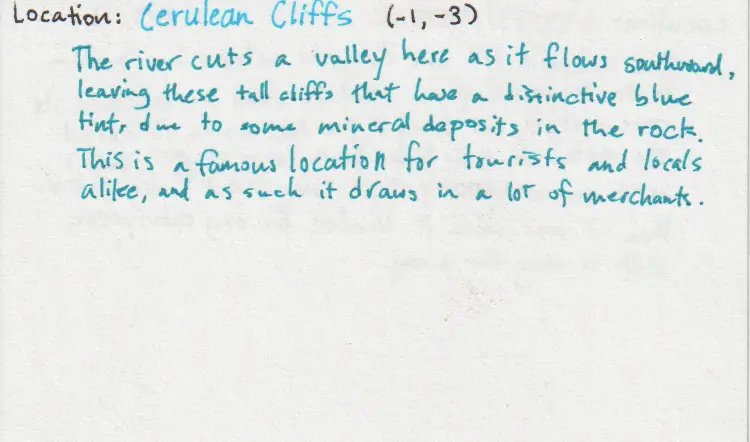 Location: Cerulean Cliffs (-1,-3)
The river cuts a valley here as it flows southward,
leaving these tall cliffs that have a distinctive blue
tint, due to some mineral deposits in the rock.
This is a famous location for tourists and locals
alike, and as such it draws in a lot of merchants.